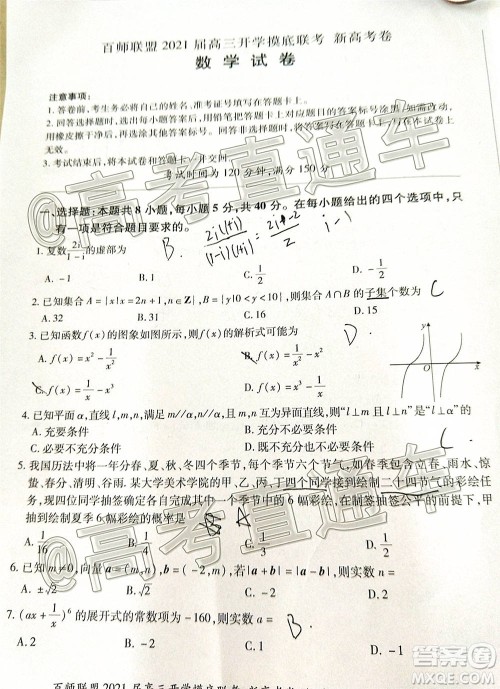 百师联盟2021届高三开学摸底联考 新高考卷
数学试卷
注意事项：
1. 答卷前，考生务必将自己的姓名、准考证号填写在答题卡上。
2. 回答选择题时，选出每小题答案后，用铅笔把答题卡上对应题目的答案标号涂黑。如需改动，
用橡皮擦干净后，再选涂其他答案标号。回答非选择题时，将答案写在答题卡上，写在本试卷上
无效。
3. 考试结束后，将本试卷和答题卡一并交回。
考试时间为120分钟，满分150分
一、选择题：本题共8小题，每小题5分，共40分。在每小题给出的四个选项中，只
有一项是符合题目要求的。
B. 2i(1+i)/(1-i)(1+i) = 2i+-2/2 i-1
1. 复数2i/1-i的虚部为
A. -1 B. 1 C. 1/2 D. -1/2
2. 已知集合A={x|x=2n+1, n∈Z}, B={y|0<y<10}, 则集合A∩B的子集个数为 C
A. 32 B. 31 C. 16 D. 15
3. 已知函数f(x)的图象如图所示，则f(x)的解析式可能为
A. f(x)=x²-1/x B. f(x)=x³-1/x
C. f(x)=1/x-x³ D. f(x)=1/x-x²
y
O
x
4. 已知平面α，直线l, m, n，满足m//α, n//α，则“l⊥m且l⊥n”是“l⊥α”的
A. 充要条件 B. 充分不必要条件
C. 必要不充分条件 D. 既不充分也不必要条件
C
5. 我国历法中将一年分春、夏、秋、冬四个季节，每个季节六个节气，如春季包含立春、雨水、惊
蛰、春分、清明、谷雨. 某大学美术学院的甲、乙、丙、丁四个同学接到绘制二十四节气的彩绘任
务，现四位同学抽签确定各自完成哪个季节中的6幅彩绘，在制签抽签公平的前提下，甲
抽到绘制夏季6幅彩绘的概率是
A
A. 1/16 B. 1/4
6. 已知m≠0，向量a=(m, n), b=(-2, m)，若|a+b|=|a-b|，则实数n=
A. -√2 B. √2 C. -2 D. 2
7. (ax+1/x)⁶的展开式的常数项为-160，则实数a=
D.
A. 2 B. -2 C. 1 D. -1
@高考直通车
@高考直通车
@高考直通车